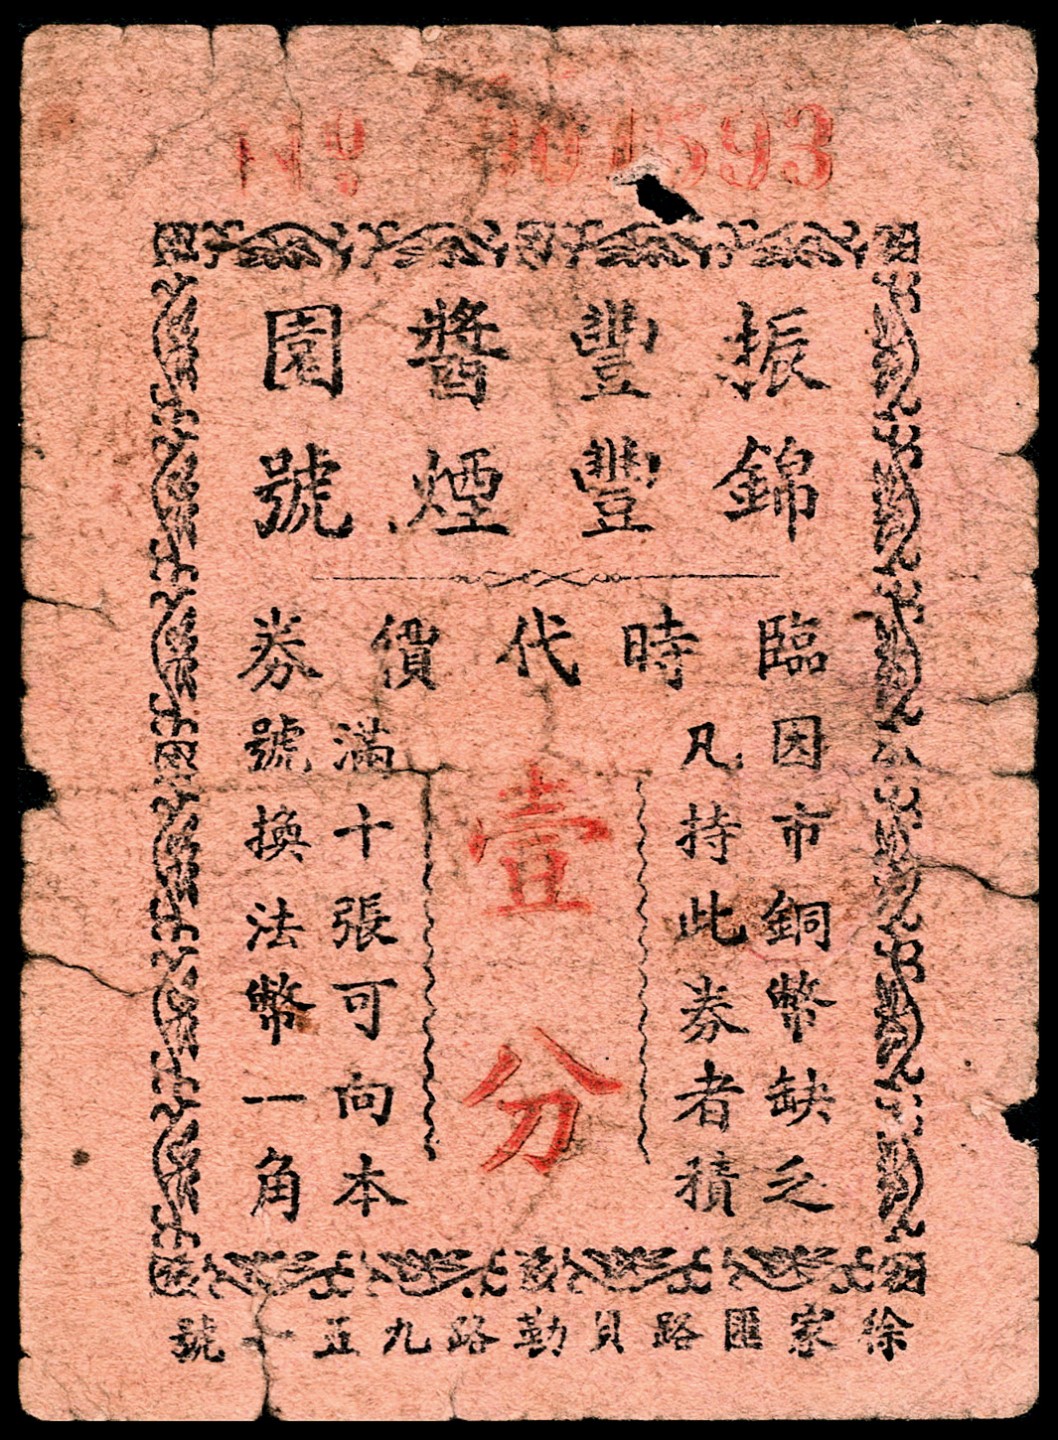 № 001593
振豐醬園
錦豐煙號
臨時代價券
因市銅幣缺乏
凡持此券者積
壹分
滿十張可向本
號換法幣一角
徐家匯路貝勒路九五一號